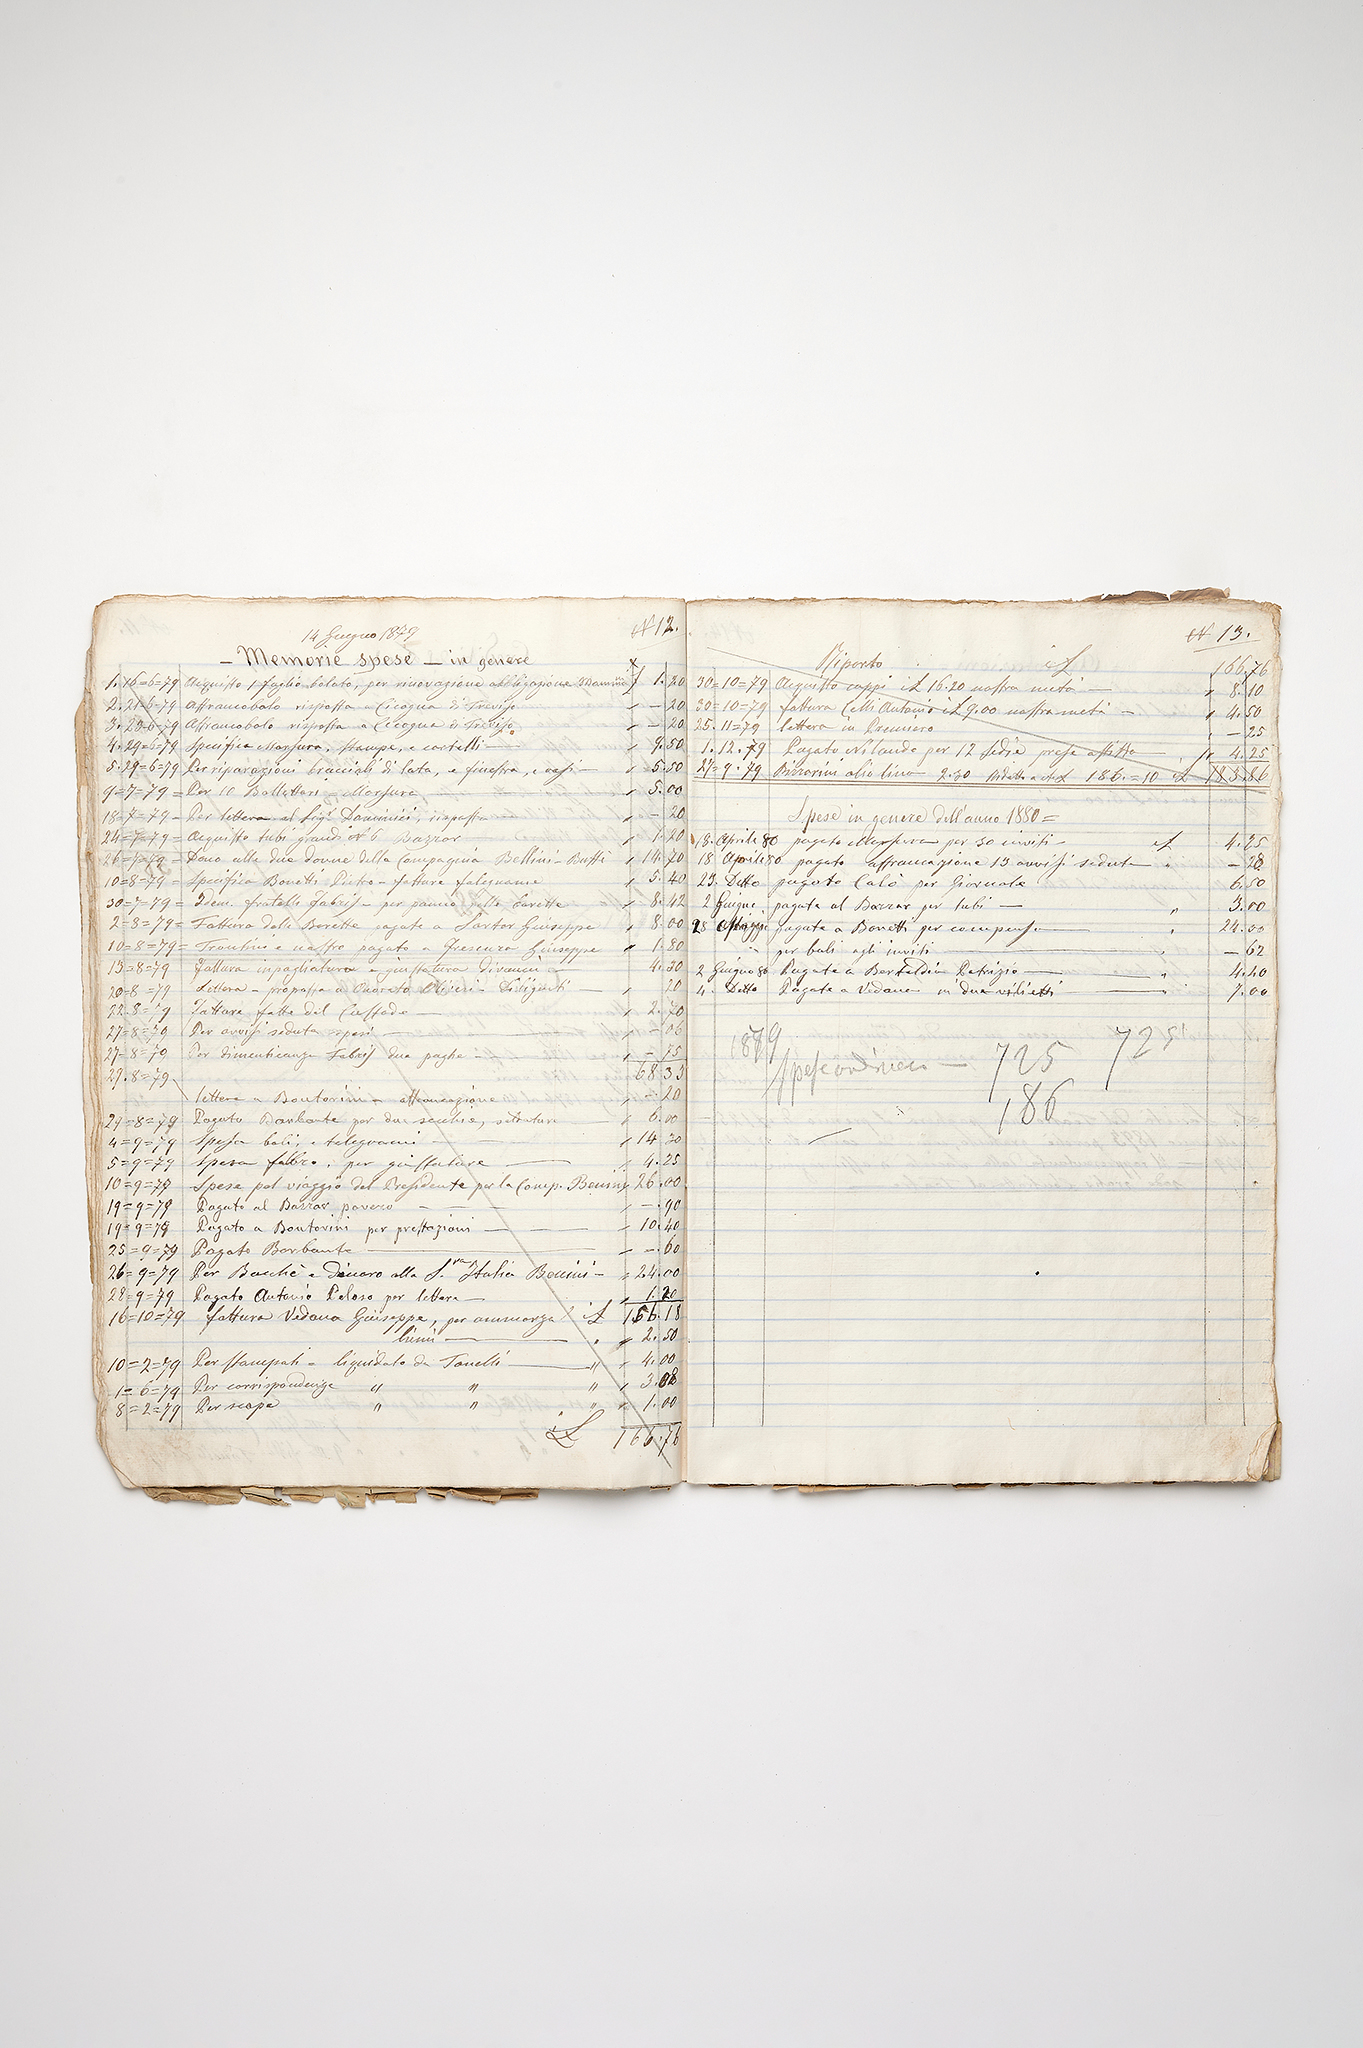 14 Giugno 1879
N 12.
- Memorie spese - in genere
1. 16=6=79 Acquisto 1 foglio bolato, per rinovazione obbligazione 1.20
2. 21=6=79 Affrancobolo risposta a Cicogna di Treviso - 20
3. 28=6=79 Affrancobolo risposta a Cicogna di Treviso - 20
4. 29=6=79 Specifica Marsura, stampe, e cartelli - 9.50
5. 29=6=79 Per riparazioni braccioli di lata, e finestra, e 5.50
9=7=79 = Per 10 Bollettari - Marsura 5.00
18=7=79 - Per lettera al Sigr Dominici, risposta - 20
24=7=79 = Acquisto tubi grandi N 6 Bazzar 1.20
26=7=79 = Dono alle due donne della Compagnia Bellini - Buffi 14.70
10=8=79 = Specifica Bonetti Pietro - fatture falegname 5.40
30=7=79 = Idem. fratelli Fabris - per panno delle Barette 8.42
2=8=79 = Fattura dele Berette pagate a Sartor Giuseppe 8.00
10=8=79 = e nastro pagato a Giuseppe 1.80
13=8=79 fattura inpagliatura e giustatura 4.30
20=8=79 Lettera - proposta a 20
22.8=79 Fatture fatte dal 2.70
27=8=79 Per avvisi seduta - 06
27=8=79 Per dimenticanza Fabris due paghe - 75
29.8=79 68 33
lettera a Bontorini - affrancazione - 20
29=8=79 Pagato Barbante per due secchie, 6.00
4=9=79 Spesa boli, e telegrami 14 20
5=9=79 Spesa fabbro, per giustature 4.25
10=9=79 Spese pel viaggio del Presidente per la Comp. 26.00
19=9=79 Pagato al Bazzar - 90
19=9=79 Pagato a Bontorini per prestazioni 10.40
25=9=79 Pagato Barbante - 60
26=9=79 Per e Denaro alla Italia Benini - 24.00
28=9=79 Pagato Antonio Peloso per lettera 1.20
16=10=79 fattura Vedana Giuseppe, per 156.18
lumi 2.50
10=2=79 Per stampati - liquidato da Tonelli 4.00
1=6=79 Per corrispondenze " " " 3.08
8=2=79 Per scope " " " 1.00
166.76
N 13.
Riporto 166.76
30=10=79 Acquisto coppi 16.20 nostra metà 8.10
30=10=79 fattura Celli Antonio 9.00 nostra metà 4.50
25.11=79 lettera in Primiero - 25
1.12.79 Pagato per 12 sedie prese affitto 4.25
27=9.79 Bizzarini olio lino 2.30 186.=10 183.86
Spese in genere dell'anno 1880 =
18. Aprile 80 pagato Marsura per 50 inviti - 4.25
18 Aprile 80 pagato affrancazione 13 avvisi seduta - 28
23. Detto pagato Calò per Giornale 6.50
2 Guigno pagate al Bazzar per tubi - 3.00
28 pagate a Bonetti per compenso 24.00
per boli agli inviti - 62
2 Guigno 80 Pagate a Bertoldin Patrizio 4.40
4. Detto Pagate a Vedana in due viglietti 7.00
1879
Spese ordinarie - 725 725
186